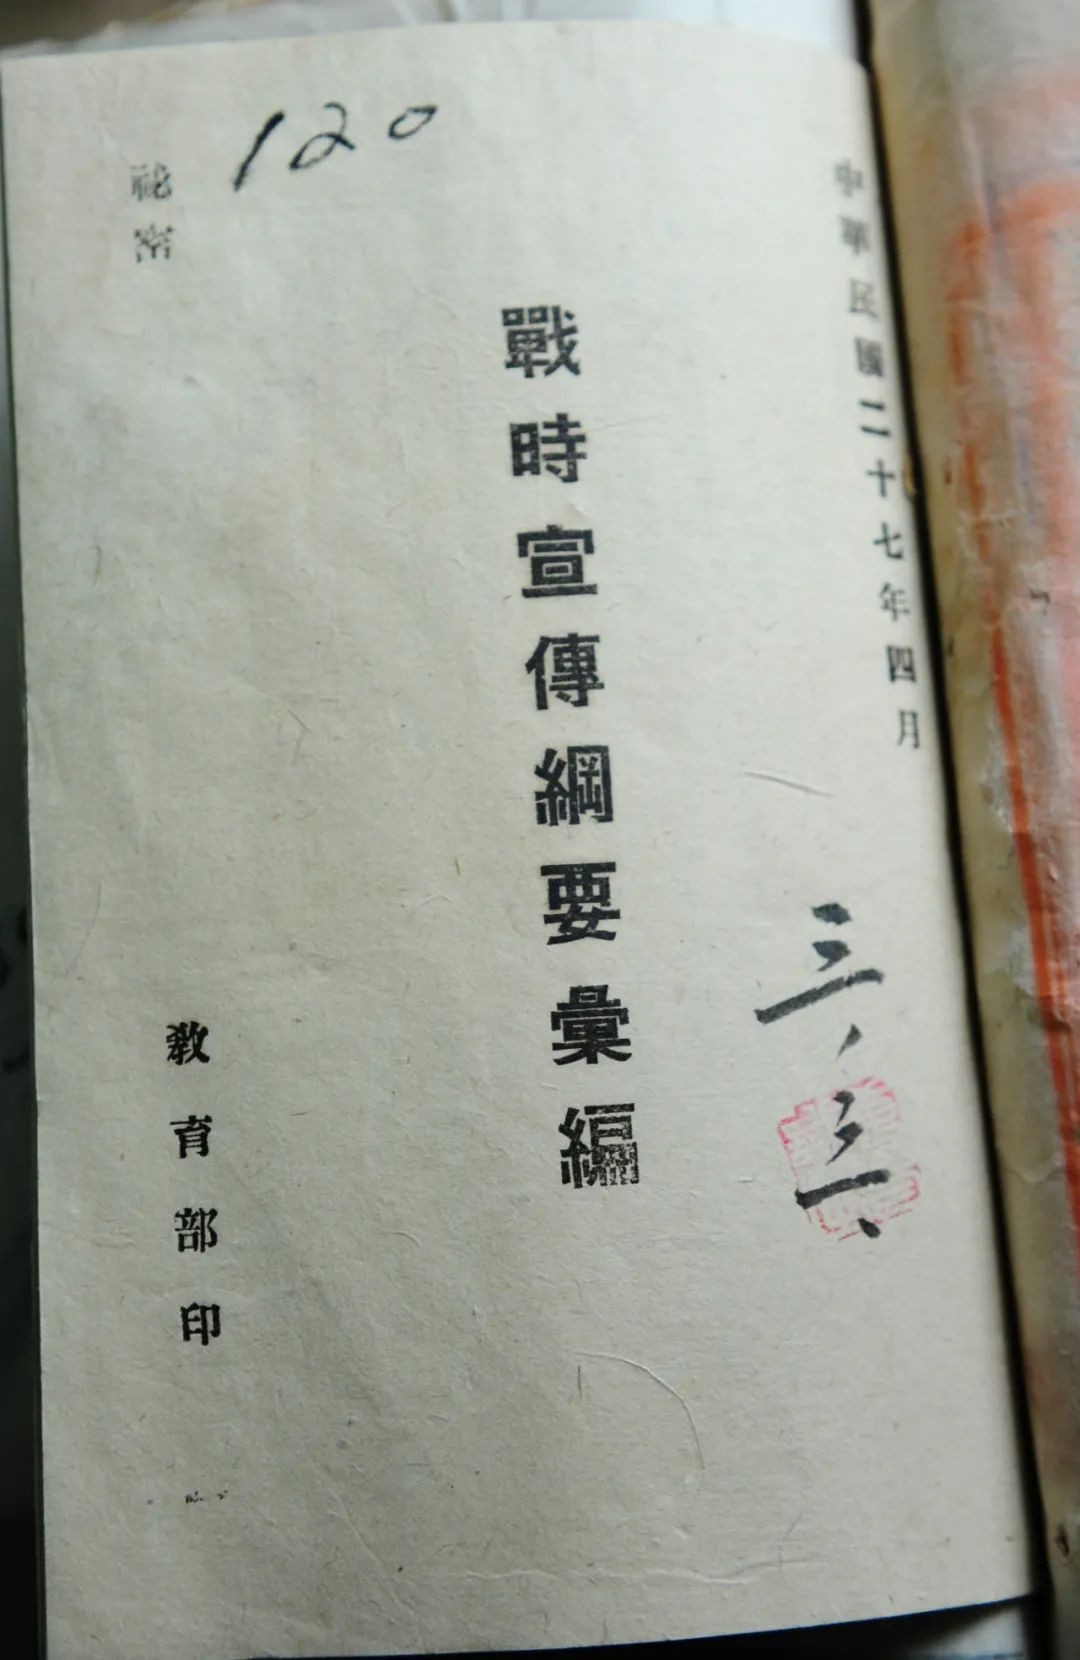 中華民國二十七年四月
戰時宣傳綱要彙編
120
秘密
教育部印